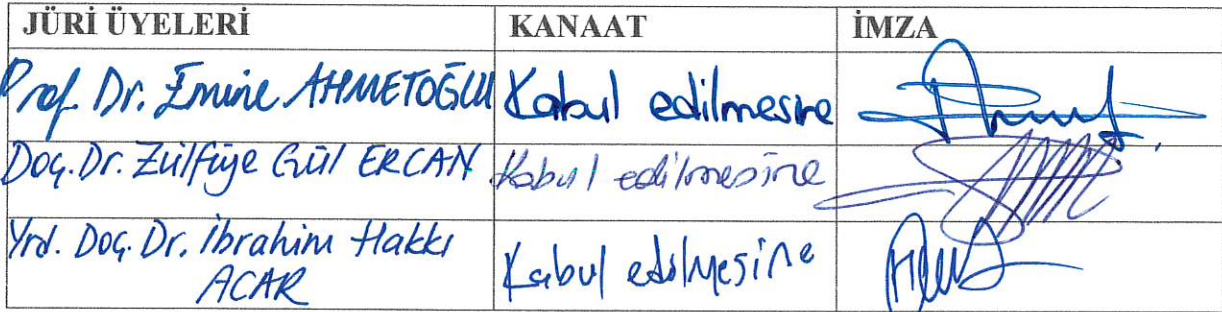 JÜRİ ÜYELERİ KANAAT İMZA
Prof. Dr. Emine AHMETOĞLU Kabul edilmesine
Doç. Dr. Zülfiye Gül ERCAN Kabul edilmesine
Yrd. Doç. Dr. İbrahim Hakkı
ACAR Kabul edilmesine